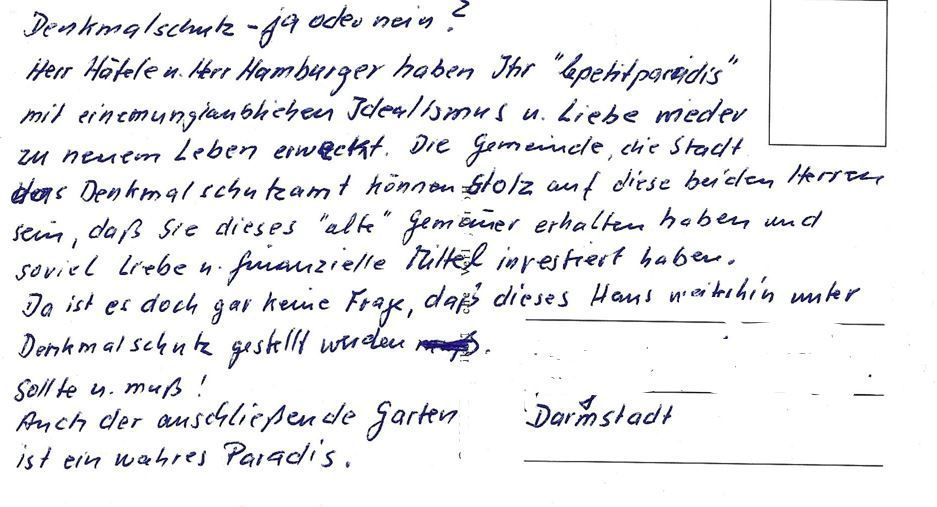 Denkmalschutz - ja oder nein?
Herr Häfele u. Herr Hamburger haben Ihr "lepetitparadis"
mit einemunglaublichen Idealismus u. Liebe wieder
zu neuem Leben erweckt. Die Gemeinde, die Stadt
das Denkmalschutzamt können Stolz auf diese beiden Herren
sein, daß Sie dieses "alte" Gemäuer erhalten haben und
soviel Liebe u. finanzielle Mittel investiert haben.
Da ist es doch gar keine Frage, daß dieses Haus weiterhin unter
Denkmalschutz gestellt werden.
Sollte u. muß!
Auch der anschließende Garten
ist ein wahres Paradis.
Darmstadt